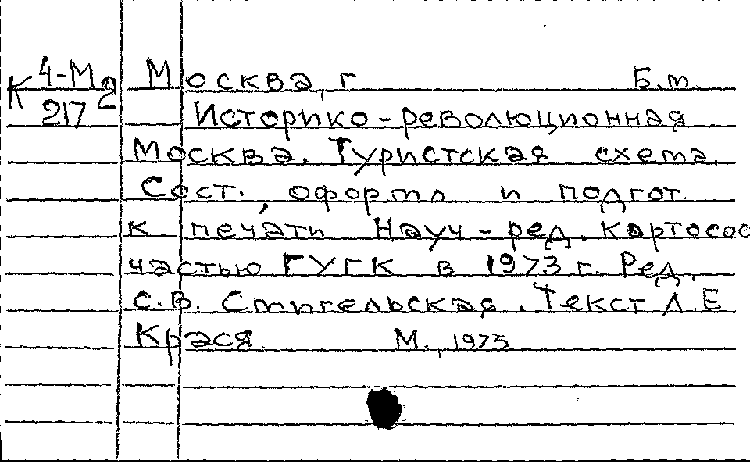 К 4-М2 Москва, г. Б.м.
217 Историко-революционная
Москва. Туристская схема.
Сост., оформл и подгот.
к печати Науч-ред. картосос
частью ГУГК в 1973 г. Ред.
С.В. Стигельская. Текст Л Е
Крася М., 1975